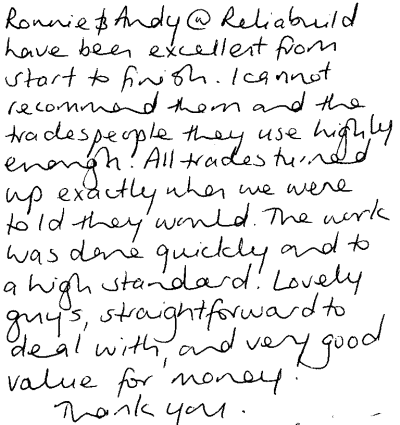 Ronnie & Andy @ Reliabuild
have been excellent from
start to finish. I cannot
recommend them and the
tradespeople they use highly
enough! All trades turned
up exactly when we were
told they would. The work
was done quickly and to
a high standard. Lovely
guys, straightforward to
deal with, and very good
value for money.
Thank you.